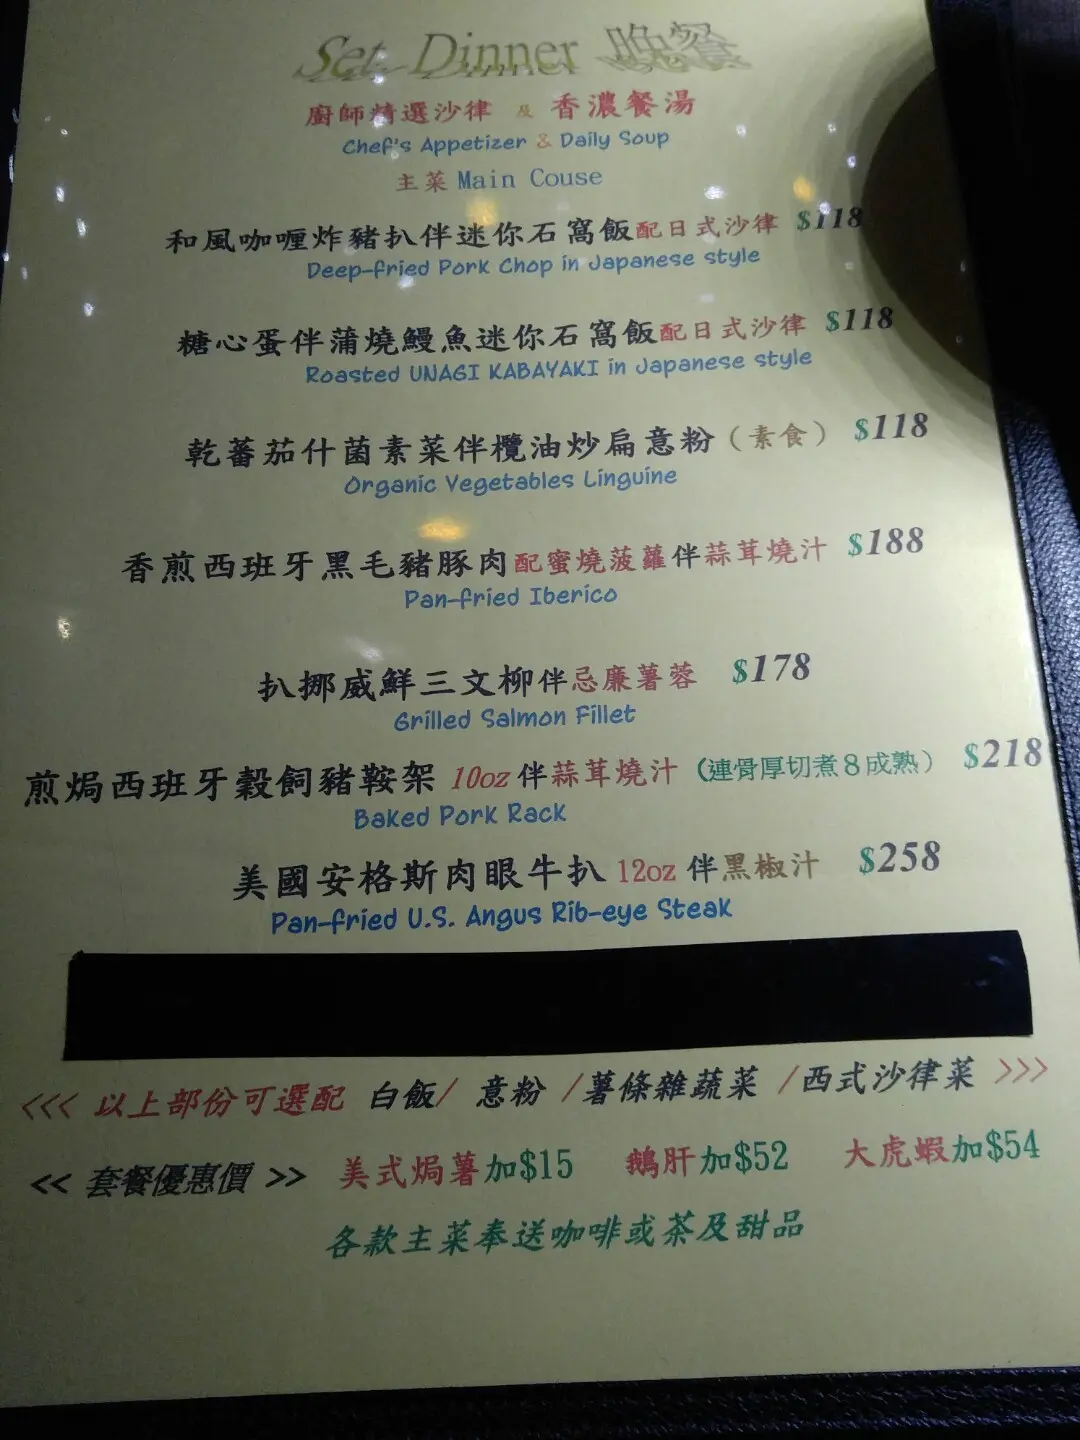 Set Dinner 晚餐
廚師精選沙律 及 香濃餐湯
Chef's Appetizer & Daily Soup
主菜 Main Couse
和風咖喱炸豬扒伴迷你石窩飯配日式沙律 $118
Deep-fried Pork Chop in Japanese style
糖心蛋伴蒲燒鰻魚迷你石窩飯配日式沙律 $118
Roasted UNAGI KABAYAKI in Japanese style
乾蕃茄什菌素菜伴欖油炒扁意粉（素食） $118
Organic Vegetables Linguine
香煎西班牙黑毛豬豚肉配蜜燒菠蘿伴蒜茸燒汁 $188
Pan-fried Iberico
扒挪威鮮三文柳伴忌廉薯蓉 $178
Grilled Salmon Fillet
煎焗西班牙穀飼豬鞍架 10oz 伴蒜茸燒汁（連骨厚切煮8成熟） $218
Baked Pork Rack
美國安格斯肉眼牛扒 12oz 伴黑椒汁 $258
Pan-fried U.S. Angus Rib-eye Steak
<<< 以上部份可選配 白飯/ 意粉 /薯條雜蔬菜 /西式沙律菜 >>>
<< 套餐優惠價 >> 美式焗薯加$15 鵝肝加$52 大虎蝦加$54
各款主菜奉送咖啡或茶及甜品